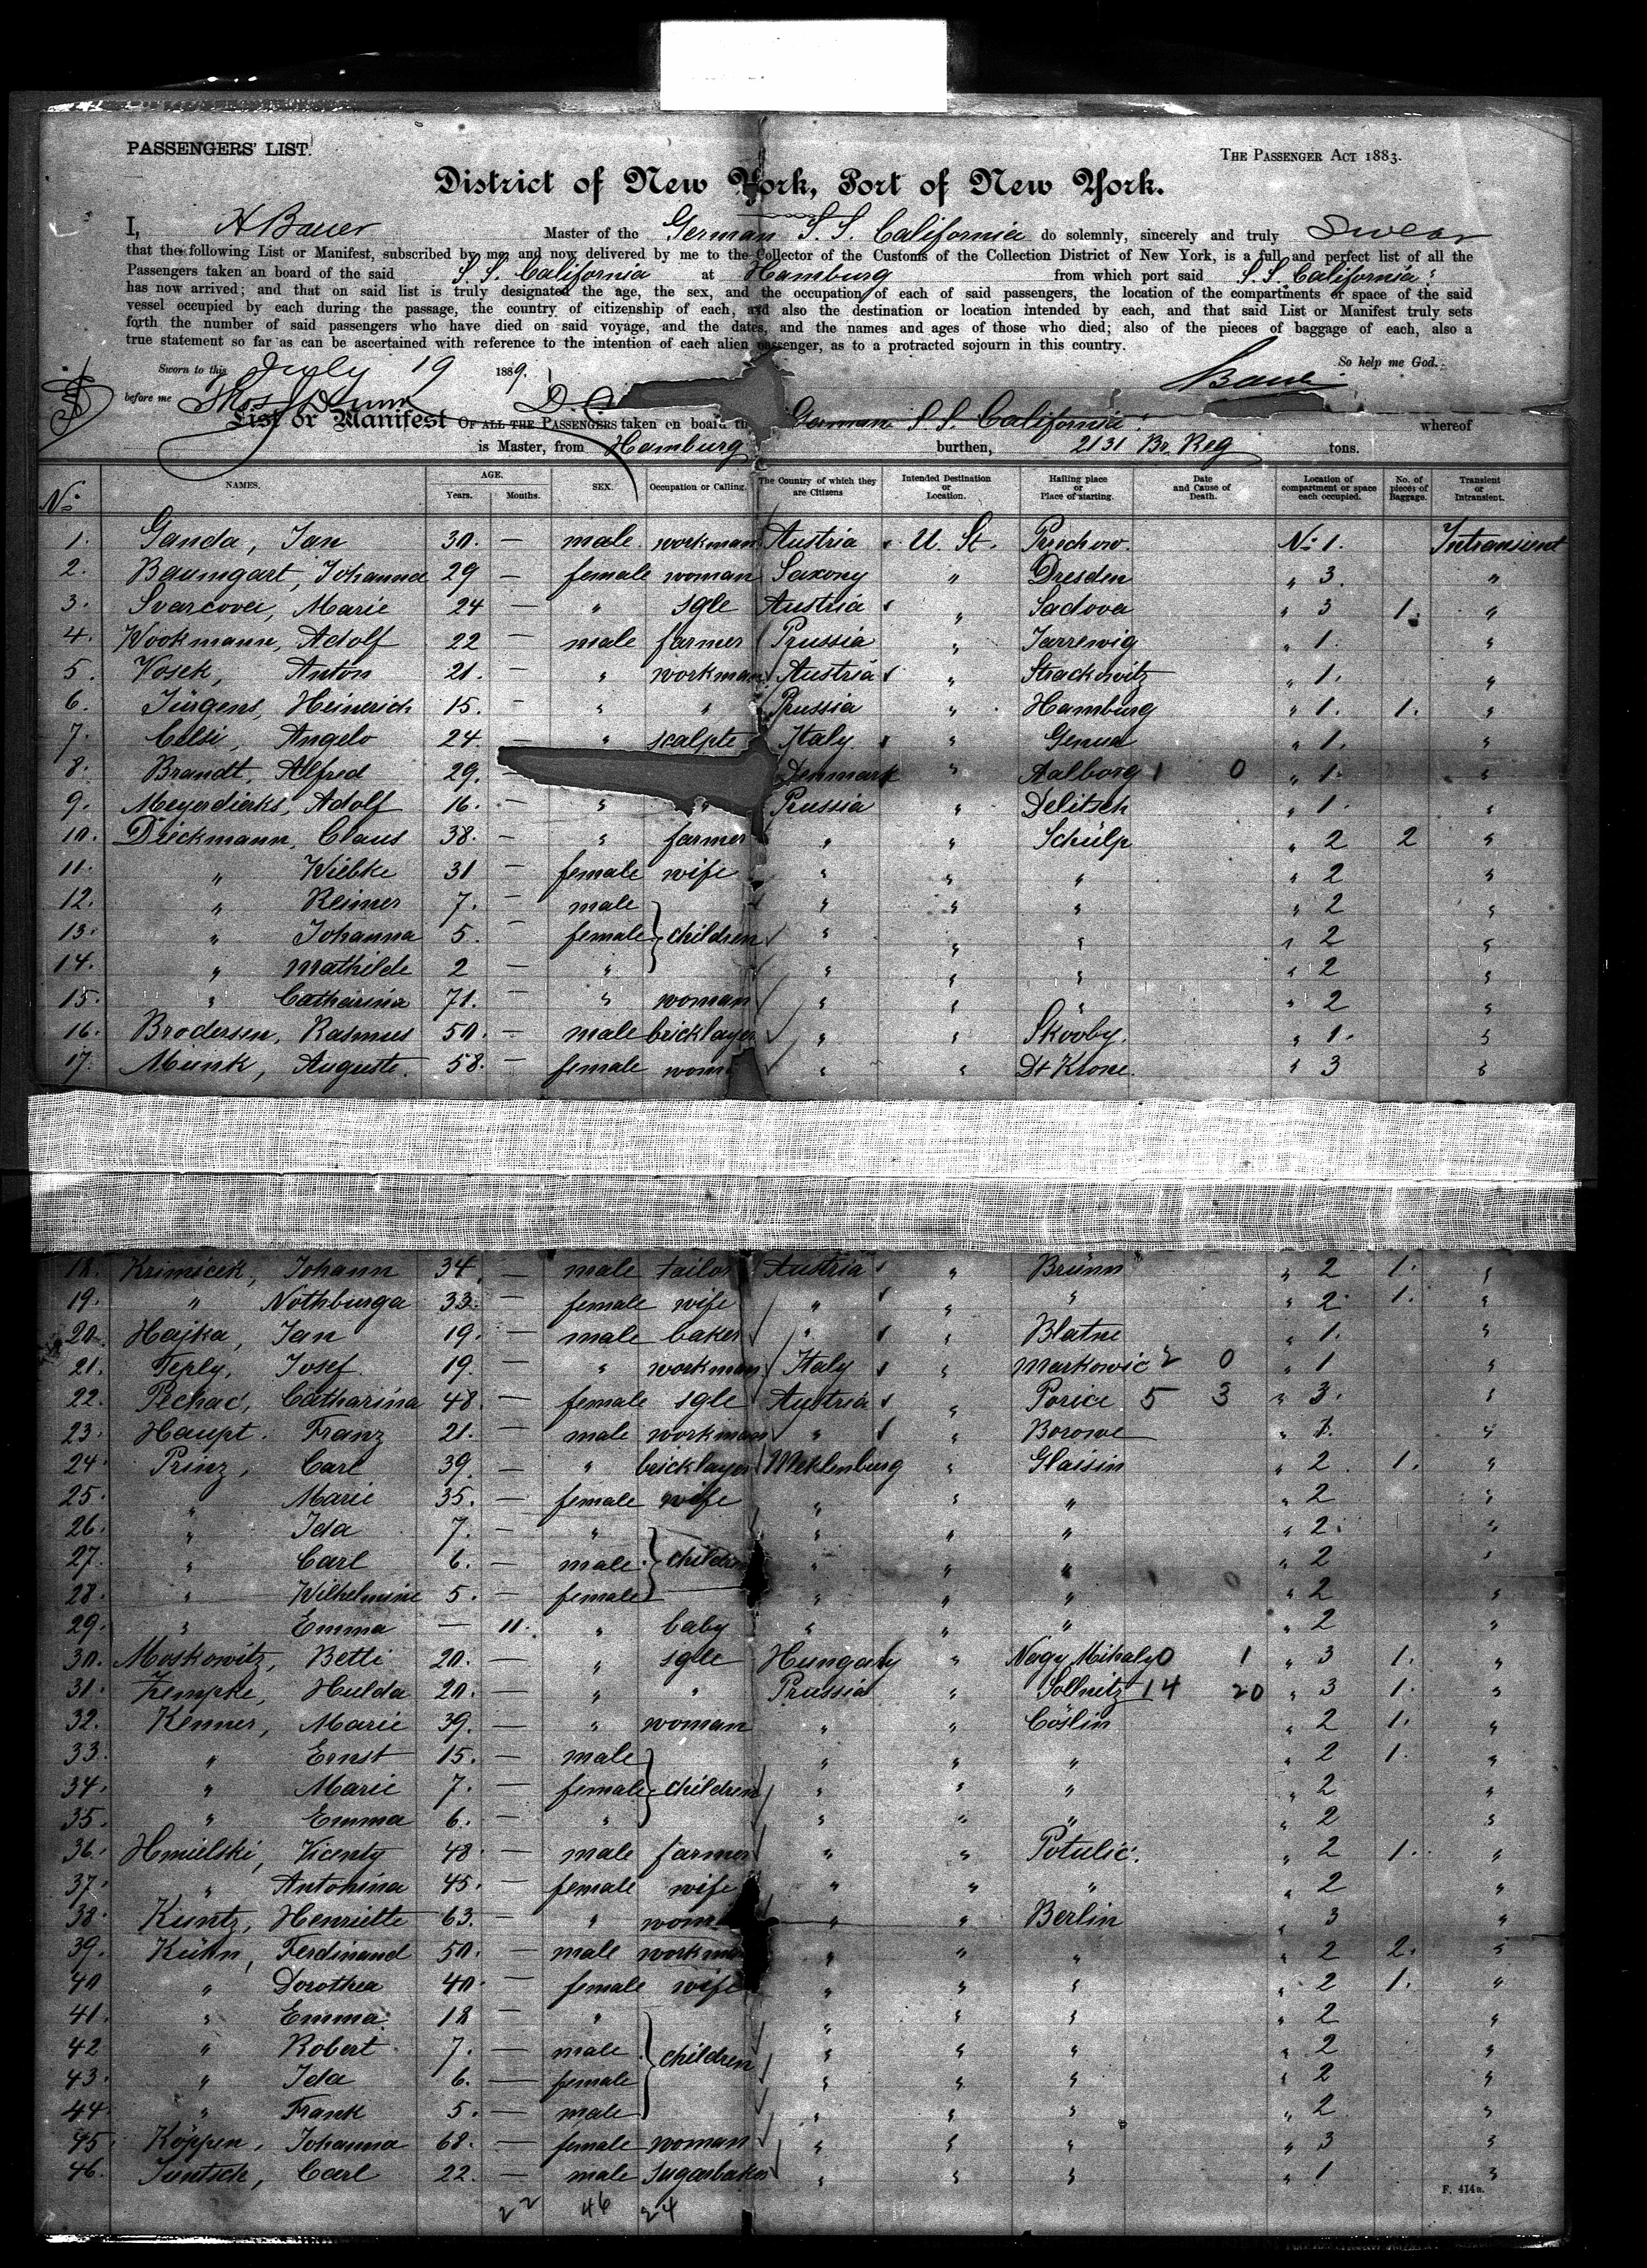 PASSENGERS' LIST.
THE PASSENGER ACT 1883.
District of New York, Port of New York.
I, H Bauer Master of the German S. S. California do solemnly, sincerely and truly Swear
that the following List or Manifest, subscribed by me, and now delivered by me to the Collector of the Customs of the Collection District of New York, is a full and perfect list of all the
Passengers taken an board of the said S. S. California at Hamburg from which port said S. S. California
has now arrived; and that on said list is truly designated the age, the sex, and the occupation of each of said passengers, the location of the compartments or space of the said
vessel occupied by each during the passage, the country of citizenship of each, and also the destination or location intended by each, and that said List or Manifest truly sets
forth the number of said passengers who have died on said voyage, and the dates, and the names and ages of those who died; also of the pieces of baggage of each, also a
true statement so far as can be ascertained with reference to the intention of each alien passenger, as to a protracted sojourn in this country.
Sworn to this July 19 1889. So help me God.
before me Thos Bauer
List or Manifest OF ALL THE PASSENGERS taken on board th German S. S. California whereof
is Master, from Hamburg burthen, 2131 Br. Reg tons.
No NAMES. AGE. Years. Months. SEX. Occupation or Calling. The Country of which they are Citizens Intended Destination or Location. Hailing place or Place of starting. Date and Cause of Death. Location of compartment or space each occupied. No. of pieces of Baggage. Transient or Intransient.
1. Ganda, Jan 30. — male workman Austria U. St. Prochow. No 1. Intransient
2. Baumgart, Johanna 29 — female woman Saxony " Dresden " 3. "
3. Svarcova, Marie 24 — " sgle Austria " Sadova " 3 1. "
4. Wookmann, Adolf 22 — male farmer Prussia " Jarrewig " 1. "
5. Vosek, Anton 21. — " workman Austria " Strackowitz " 1. "
6. Jürgens, Heinrich 15. — " " Prussia " Hamburg " 1. 1. "
7. Celsi, Angelo 24. " scalpte Italy " Genua " 1. "
8. Brandt, Alfred 29. Denmark " Aalborg 1 0 " 1. "
9. Meyerdierks, Adolf 16. — " " Prussia " Delitsch " 1. "
10. Dieckmann, Claus 38. — " farmer " " Schülp " 2 2 "
11. " Wiebke 31 — female wife " " " " 2 "
12. " Reimer 7. — male " " " " 2 "
13. " Johanna 5. — female children " " " " 2 "
14. " Mathilde 2 — " " " " " 2 "
15. " Catharina 71. — " woman " " " " 2 "
16. Brodersen, Rasmus 50. — male bricklayer " " Skovby. " 1. "
17. Munk, Auguste. 58. — female wom " " Dt Krone. " 3 "
18. Krimicek, Johann 34. — male tailor Austria " Brünn " 2 1. "
19. " Nothburga 33. — female wife " " " " 2. 1. "
20. Hajka, Jan 19. — male baker " " Blatne " 1. "
21. Teply, Josef 19. — " workman Italy " Markowic 2 0 " 1 "
22. Pechac, Catharina 48. — female sgle Austria " Porice 5 3 " 3. "
23. Haupt. Franz 21. — male workman " " Borowe " 1. "
24. Prinz, Carl 39. — " bricklayer Meklenburg " Glaisin " 2 1. "
25. " Marie 35. — female wife " " " " 2 "
26. " Ida 7. — " " " " " 2. "
27. " Carl 6. — male children " " " " 2 "
28. " Wilhelmine 5. — female " " " " 2 "
29. " Emma — 11. " baby " " " " 2 "
30. Moskowitz, Betti 20. — " sgle Hungary " Nagy Mihaly 0 1 " 3 1. "
31. Zempke, Hulda 20. — " " Prussia " Sollnitz 14 20 " 3 1. "
32. Kenner, Marie 39. — " woman " " Cöslin " 2 1. "
33. " Ernst 15. — male " " " " 2 1. "
34. " Marie 7. — female children " " " " 2 "
35. " Emma 6. — " " " " " 2 "
36. Hmielski, Vicenty 48. — male farmer " " Potulic. " 2 1. "
37. " Antonina 45. — female wife " " " " 2 "
38. Kuntz, Henriette 63. — " wom " " Berlin " 3 "
39. Kühn, Ferdinand 50. — male workman " " " " 2 2. "
40 " Dorothea 40. — female wife " " " " 2 1. "
41. " Emma 18 — " " " " " 2 "
42 " Robert 7. — male children " " " " 2 "
43. " Ida 6. — female " " " " 2 "
44 " Frank 5. — male " " " " 2 "
45 Köppen, Johanna 68. — female woman " " " " 3 "
46. Juntsch, Carl 22. — male sugarbaker " " " " 1 "
F. 414a.
22 46 24